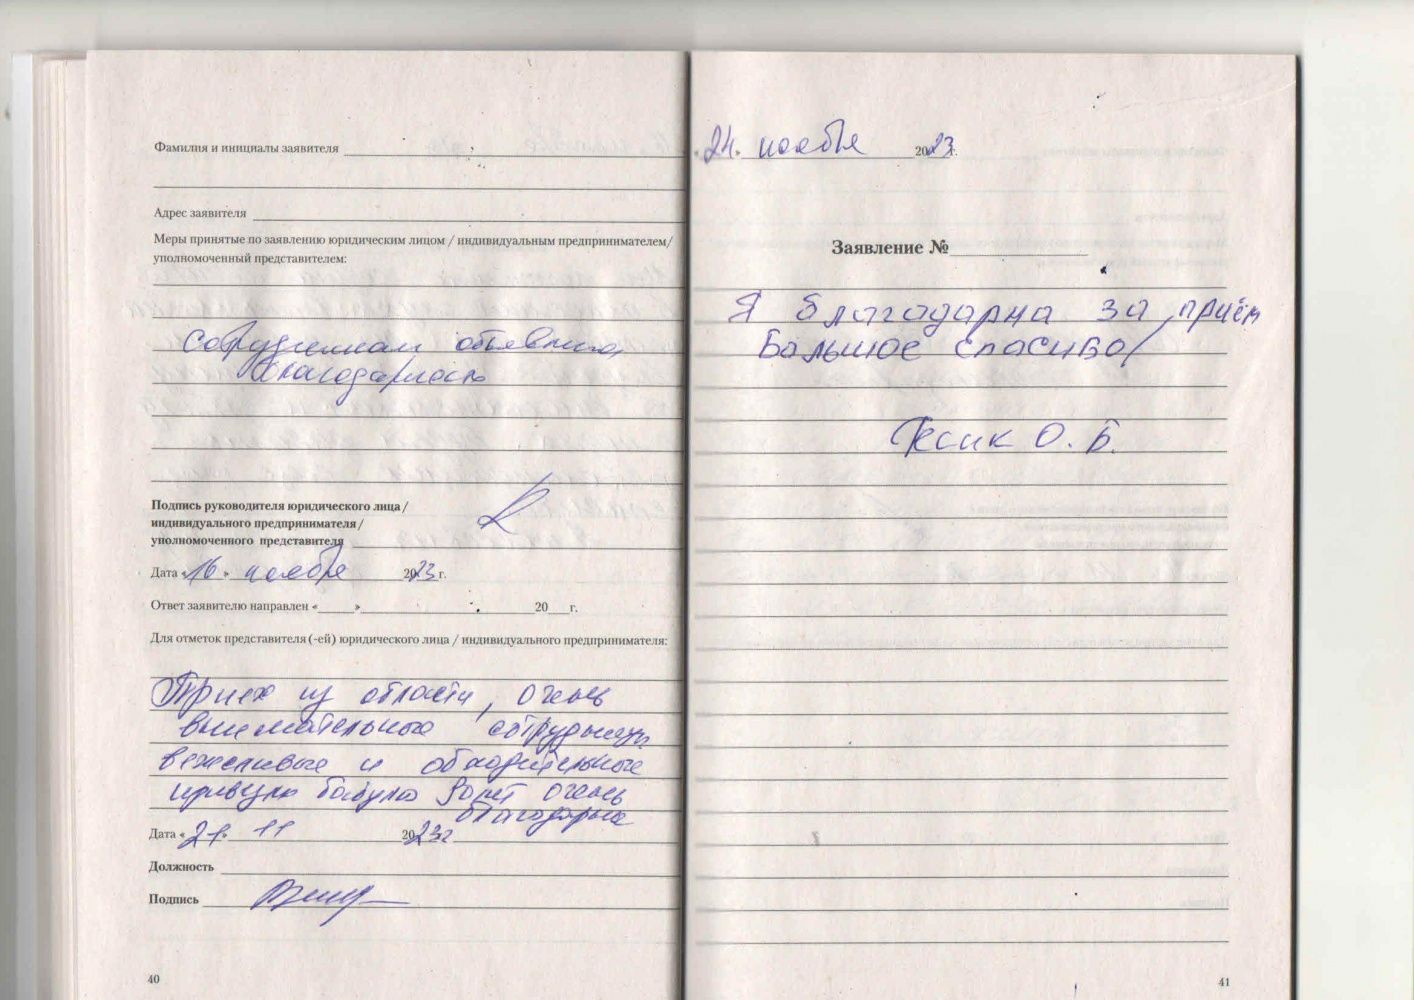 Фамилия и инициалы заявителя
Адрес заявителя
Меры принятые по заявлению юридическим лицом / индивидуальным предпринимателем/
уполномоченный представителем:
Сотрудникам объявлена
благодарность
Подпись руководителя юридического лица/
индивидуального предпринимателя/
уполномоченного представителя
Дата «16» ноября 2023 г.
Ответ заявителю направлен « » 20 г.
Для отметок представителя (-ей) юридического лица / индивидуального предпринимателя:
из области, очень
внимательные сотрудники
вежливые и обходительные
очень
благодарны
Дата «21» 11 2023г
Должность
Подпись
40
24. ноября 2023 г.
Заявление №
Я благодарна за приём
Большое спасибо/
О. Б.
41